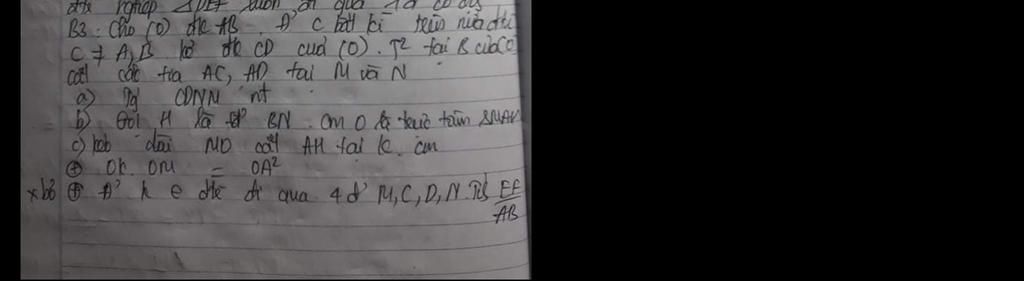 nghiệp
B3: Cho (O) đk AB. Đ' C bất kì trên nửa đt
C ≠ A, B kẻ đk CD của (O). T² tại B của (O)
cắt các tia AC, AD tại M và N
a) Tg CDNM nt
b) Gọi H là tđ' BN. CM O là trực tâm ΔMAH
c) kéo dài MO cắt AH tại K. cm
⊕ OK. OM = OA²
⊕ Đ' K e đtr đi qua 4 đ' M, C, D, N. Tỉ số EF/AB